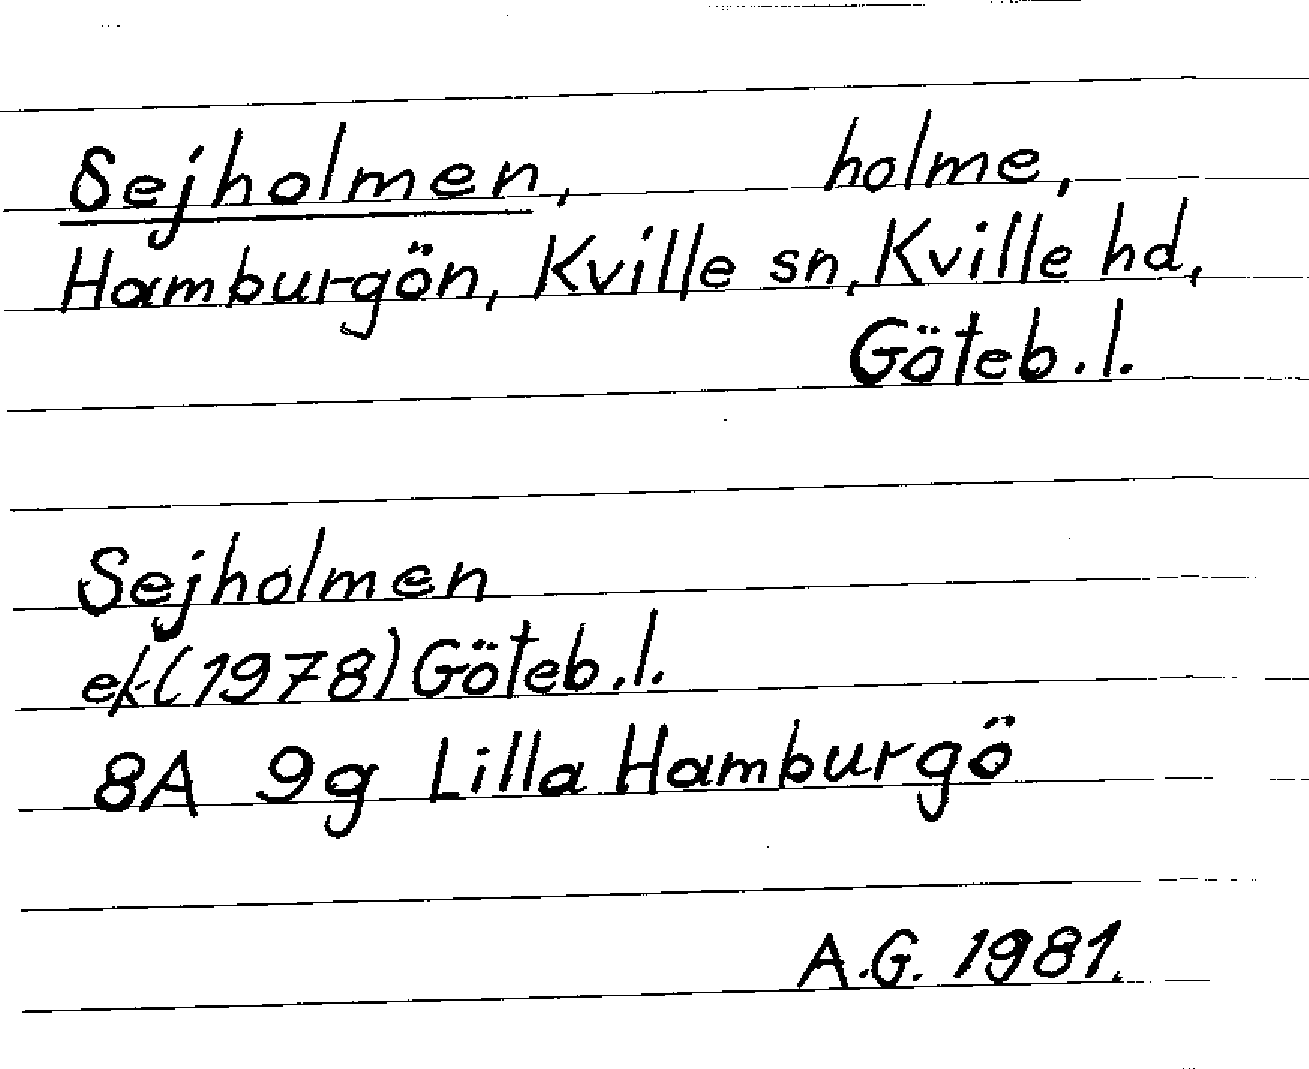 Sejholmen, holme,
Hamburgön, Kville sn, Kville hd,
Göteb. l.
Sejholmen
ek (1978) Göteb. l.
8A 9g Lilla Hamburgö
A.G. 1981.